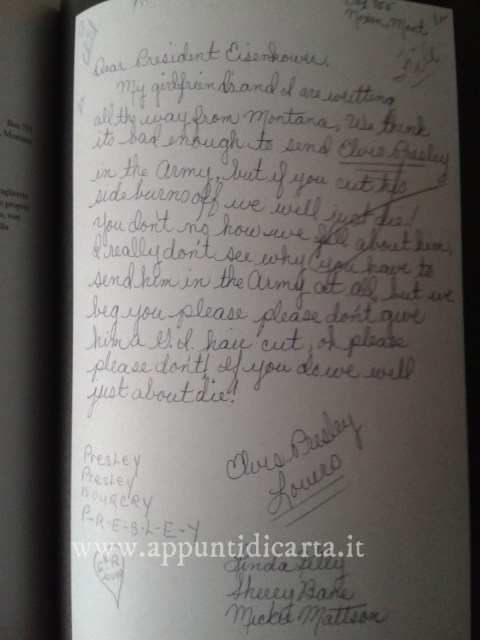 Box 755
Noxon, Mont
Dear President Eisenhower,
My girlfriend's and I are writting
all the way from Montana, We think
its bad enough to send Elvis Presley
in the Army, but if you cut his
side burns off we will just die!
You don't no how we fell about him,
I really don't see why you have to
send him in the Army at all, but we
beg you please please dont give
him a G.I. hair cut, oh please
please don't! If you do we will
just about die!
Elvis Presley
Lovers
Presley
Presley
IS OUR CRY
P-R-E-S-L-E-Y
www.appuntidicarta.it
Linda Kelly
Sherry Bane
Mickie Mattson